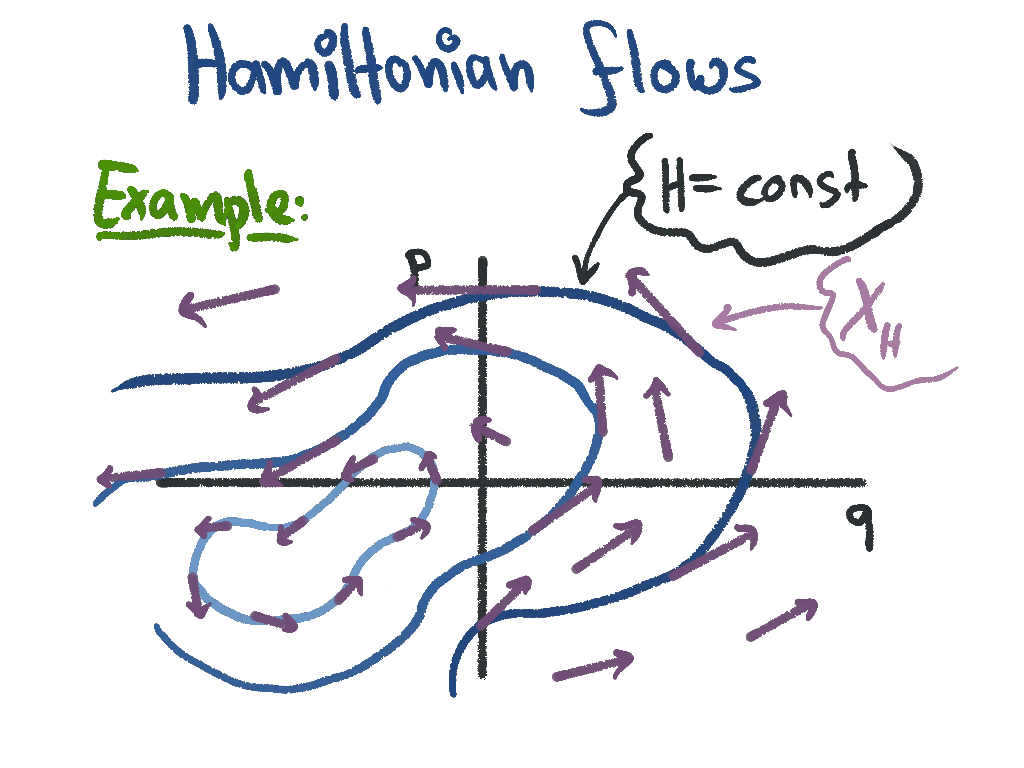 Hamiltonian flows
Example:
H = const
p
X_H
q